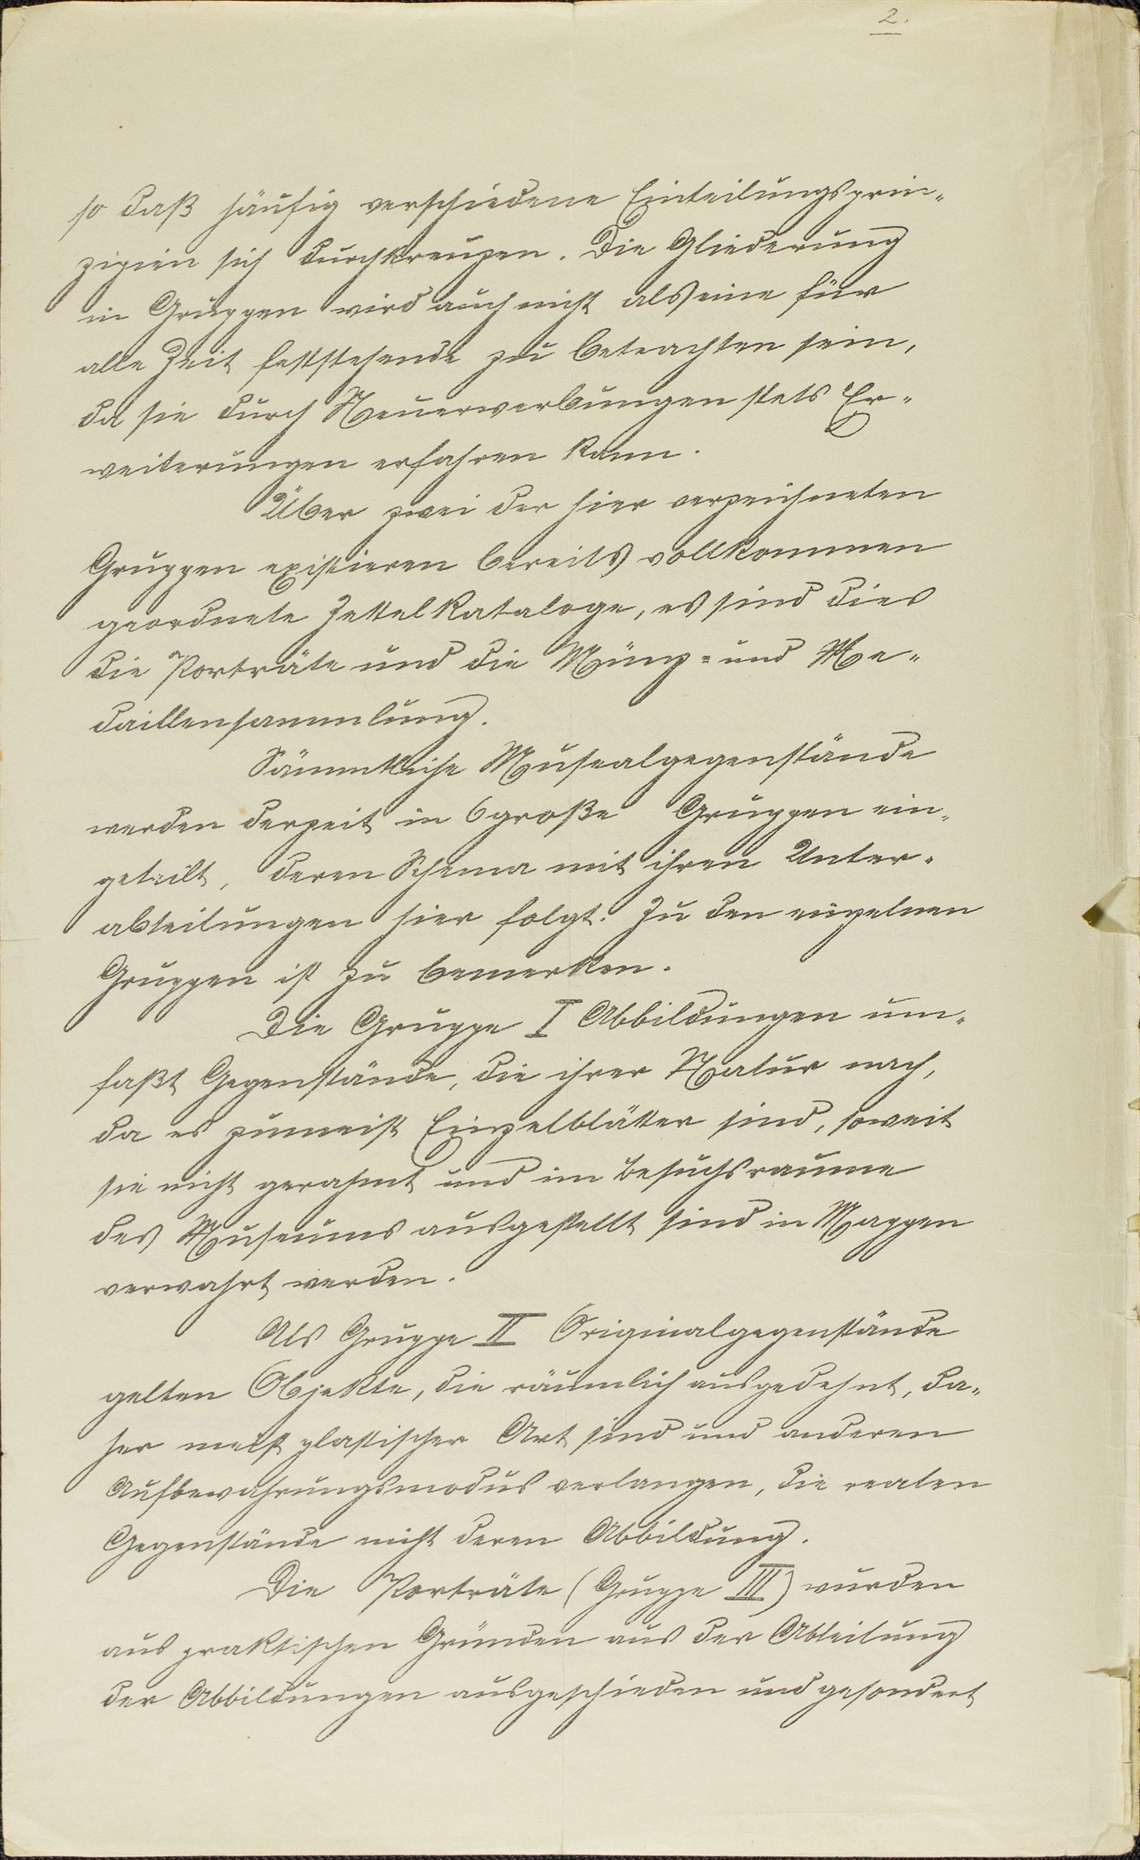 2.
so daß häufig verschiedene Einteilungsprin-
zipien sich durchkreuzen. Die Gliederung
in Gruppen wird auch nicht als eine für
alle Zeit feststehende zu betrachten sein,
da sie durch Neuerwerbungen stets Er-
weiterungen erfahren kann.
Über zwei der hier verzeichneten
Gruppen existieren bereits vollkommen
geordnete Zettelkataloge, es sind dies
die Porträte und die Münz- und Me-
daillensammlung.
Sämmtliche Musealgegenstände
werden derzeit in 6 große Gruppen ein-
geteilt, deren Schema mit ihren Unter-
abteilungen hier folgt. Zu den einzelnen
Gruppen ist zu bemerken.
Die Gruppe I Abbildungen um-
faßt Gegenstände, die ihrer Natur nach,
da es zumeist Einzelblätter sind, soweit
sie nicht gerahmt und im Besuchsraume
des Museums ausgestellt sind in Mappen
verwahrt werden.
Als Gruppe II Originalgegenstände
gelten Objekte, die räumlich ausgedehnt, da-
her meist plastischer Art sind und anderen
Aufbewahrungsmodus verlangen, die realen
Gegenstände nicht deren Abbildung.
Die Porträte (Gruppe III) wurden
aus praktischen Gründen aus der Abteilung
der Abbildungen ausgeschieden und gesondert